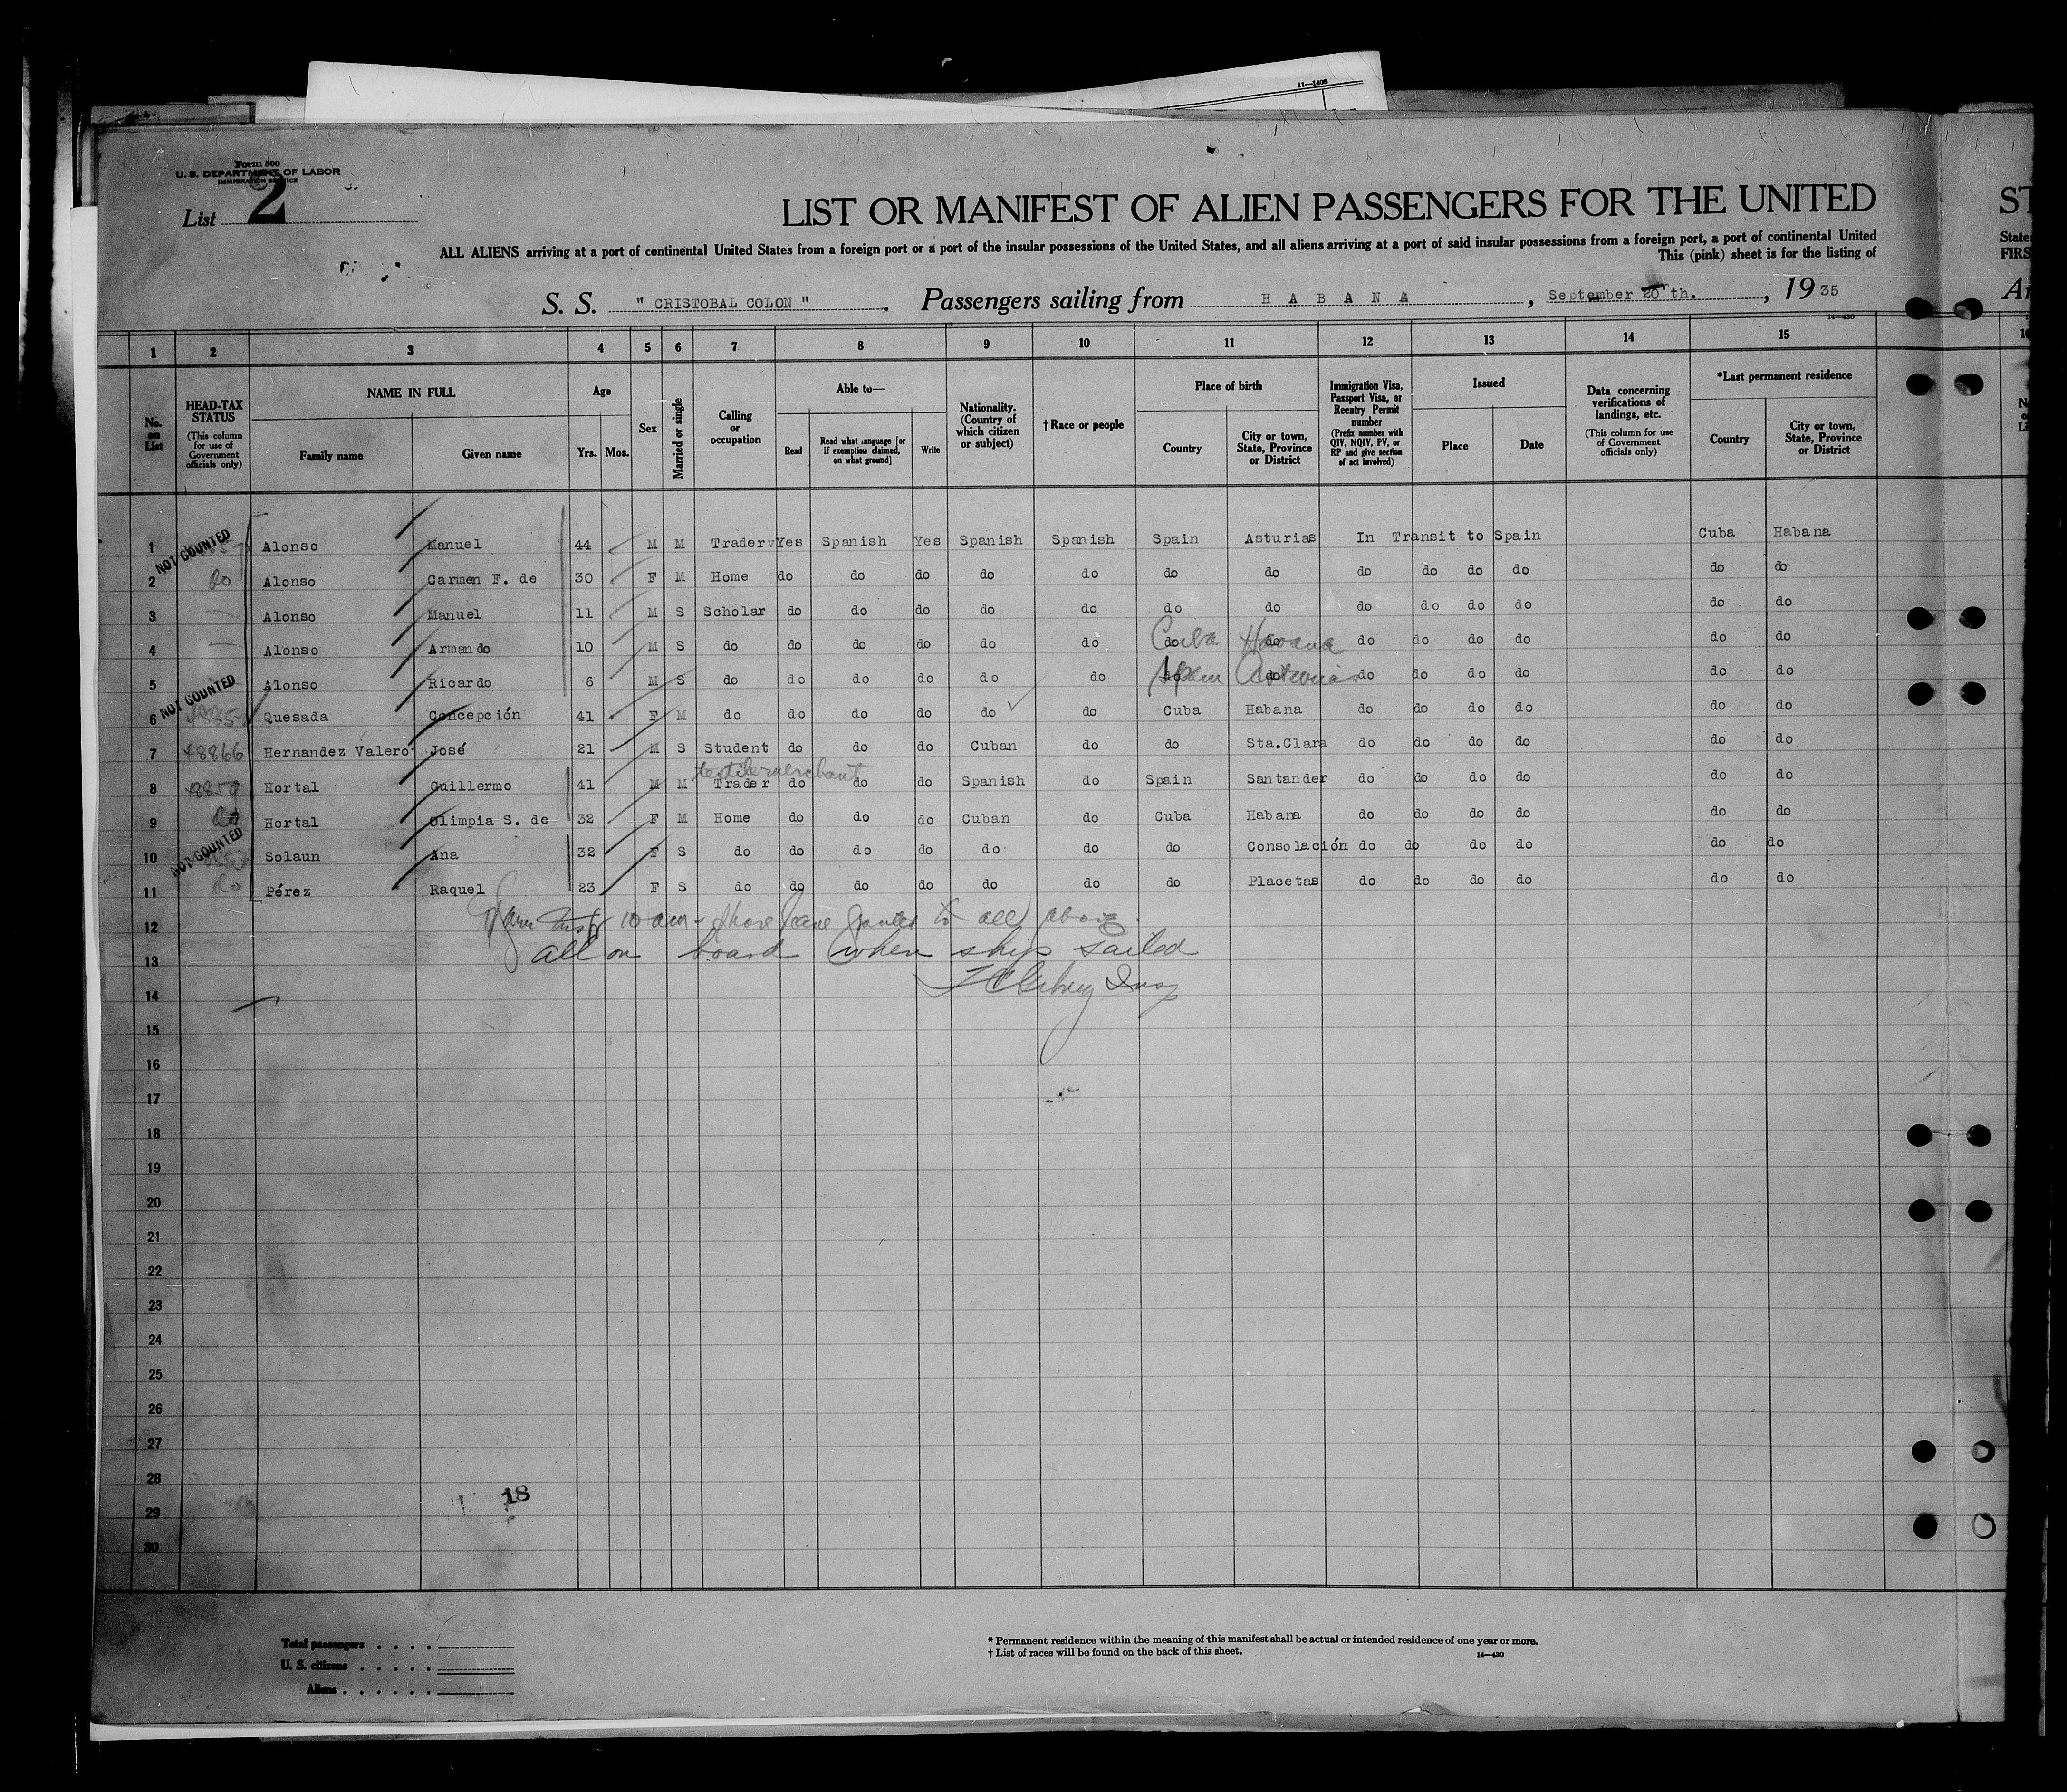 11—1408
Form 500
U. S. DEPARTMENT OF LABOR
IMMIGRATION SERVICE
List 2
LIST OR MANIFEST OF ALIEN PASSENGERS FOR THE UNITED
ST
ALL ALIENS arriving at a port of continental United States from a foreign port or a port of the insular possessions of the United States, and all aliens arriving at a port of said insular possessions from a foreign port, a port of continental United
State
This (pink) sheet is for the listing of
FIRS
S. S. " CRISTOBAL COLON " . Passengers sailing from H A B A N A , September 20 th. , 19 35
14—430
1 2 3 4 5 6 7 8 9 10 11 12 13 14 15
No. on List
HEAD-TAX STATUS
(This column for use of Government officials only)
NAME IN FULL
Family name Given name
Age
Yrs. Mos.
Sex
Married or single
Calling or occupation
Able to—
Read Read what language [or if exemption claimed, on what ground] Write
Nationality. (Country of which citizen or subject)
†Race or people
Place of birth
Country City or town, State, Province or District
Immigration Visa, Passport Visa, or Reentry Permit number
(Prefix number with QIV, NQIV, PV, or RP and give section of act involved)
Issued
Place Date
Data concerning verifications of landings, etc.
(This column for use of Government officials only)
*Last permanent residence
Country City or town, State, Province or District
1 NOT COUNTED Alonso Manuel 44 M M Trader Yes Spanish Yes Spanish Spanish Spain Asturias In Transit to Spain Cuba Habana
2 do Alonso Carmen F. de 30 F M Home do do do do do do do do do do do do do
3 Alonso Manuel 11 M S Scholar do do do do do do do do do do do do do
4 Alonso Armando 10 M S do do do do do do do Cuba do Havana do do do do do do
5 Alonso Ricardo 6 M S do do do do do do do Spain do Asturias do do do do do do
6 NOT COUNTED Quesada Concepción 41 F M do do do do do do Cuba Habana do do do do do do
7 48866 Hernandez Valero José 21 M S Student do do do Cuban do do Sta.Clara do do do do do do
textile merchant
8 Hortal Guillermo 41 M M Trader do do do Spanish do Spain Santander do do do do do do
9 do Hortal Olimpia S. de 32 F M Home do do do Cuban do Cuba Habana do do do do do do
10 NOT COUNTED Solaun Ana 32 F S do do do do do do do Consolación do do do do do do
11 do Pérez Raquel 23 F S do do do do do do do Placetas do do do do do do
12 10 am - shore leave granted to all above
13 all on board when ship sailed
14 Insp
15
16
17
18
19
20
21
22
23
24
25
26
27
28
18
29
30
Total passengers . . . .
U. S. citizens . . . . .
Aliens . . . . . .
* Permanent residence within the meaning of this manifest shall be actual or intended residence of one year or more.
† List of races will be found on the back of this sheet.
14—430